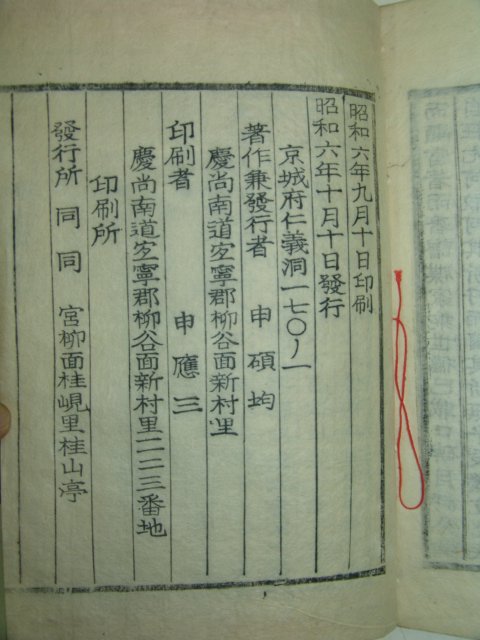 昭和六年九月十日印刷
昭和六年十月十日發行
京城府仁義洞一七〇ノ一
著作兼發行者 申碩均
慶尚南道宜寧郡柳谷面新村里
印刷者 申應三
慶尚南道宜寧郡柳谷面新村里二二三番地
印刷所
發行所 同 同 宮柳面桂峴里桂山亭